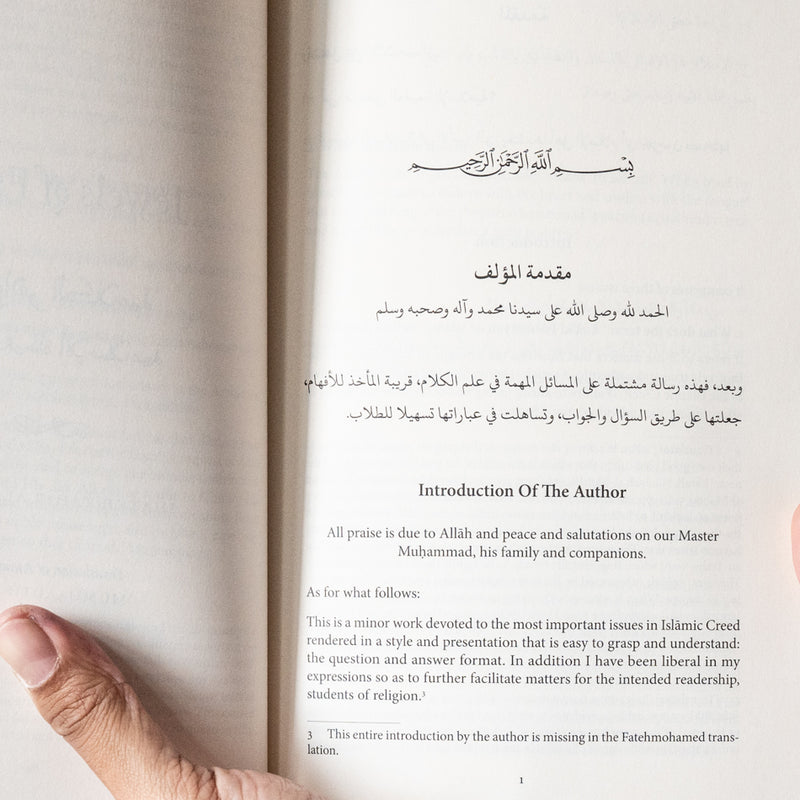 بِسْمِ اللَّهِ الرَّحْمَٰنِ الرَّحِيمِ
مقدمة المؤلف
الحمد لله وصلى الله على سيدنا محمد وآله وصحبه وسلم
وبعد، فهذه رسالة مشتملة على المسائل المهمة في علم الكلام، قريبة المأخذ للأفهام،
جعلتها على طريق السؤال والجواب، وتساهلت في عباراتها تسهيلا للطلاب.
Introduction Of The Author
All praise is due to Allāh and peace and salutations on our Master
Muḥammad, his family and companions.
As for what follows:
This is a minor work devoted to the most important issues in Islāmic Creed
rendered in a style and presentation that is easy to grasp and understand:
the question and answer format. In addition I have been liberal in my
expressions so as to further facilitate matters for the intended readership,
students of religion.³
3 This entire introduction by the author is missing in the Fatehmohamed trans-
lation.
1